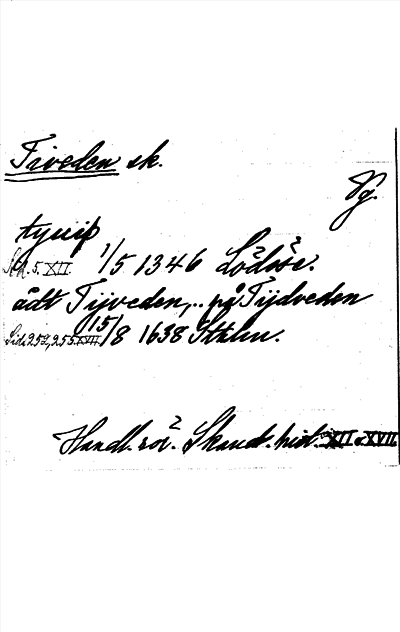 Tiveden sk.
Vg.
tyuiþ
Sid. 5. XII. 1/5 1346 Lödöse.
ådt Tijveden, .. på Tijdveden
Sid. 252, 255 XVII. 15/8 1638 Sthlm.
Handl. rör. Skand. hist. XII o. XVII.